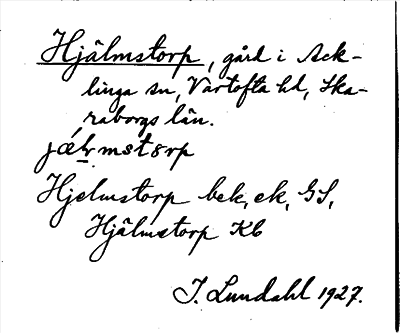 Hjälmstorp, gård i Ack-
linga sn, Vartofta hd, Ska-
raborgs län.
Hjelmstorp bek, ek, GS,
Hjälmstorp Kb
I. Lundahl 1927.